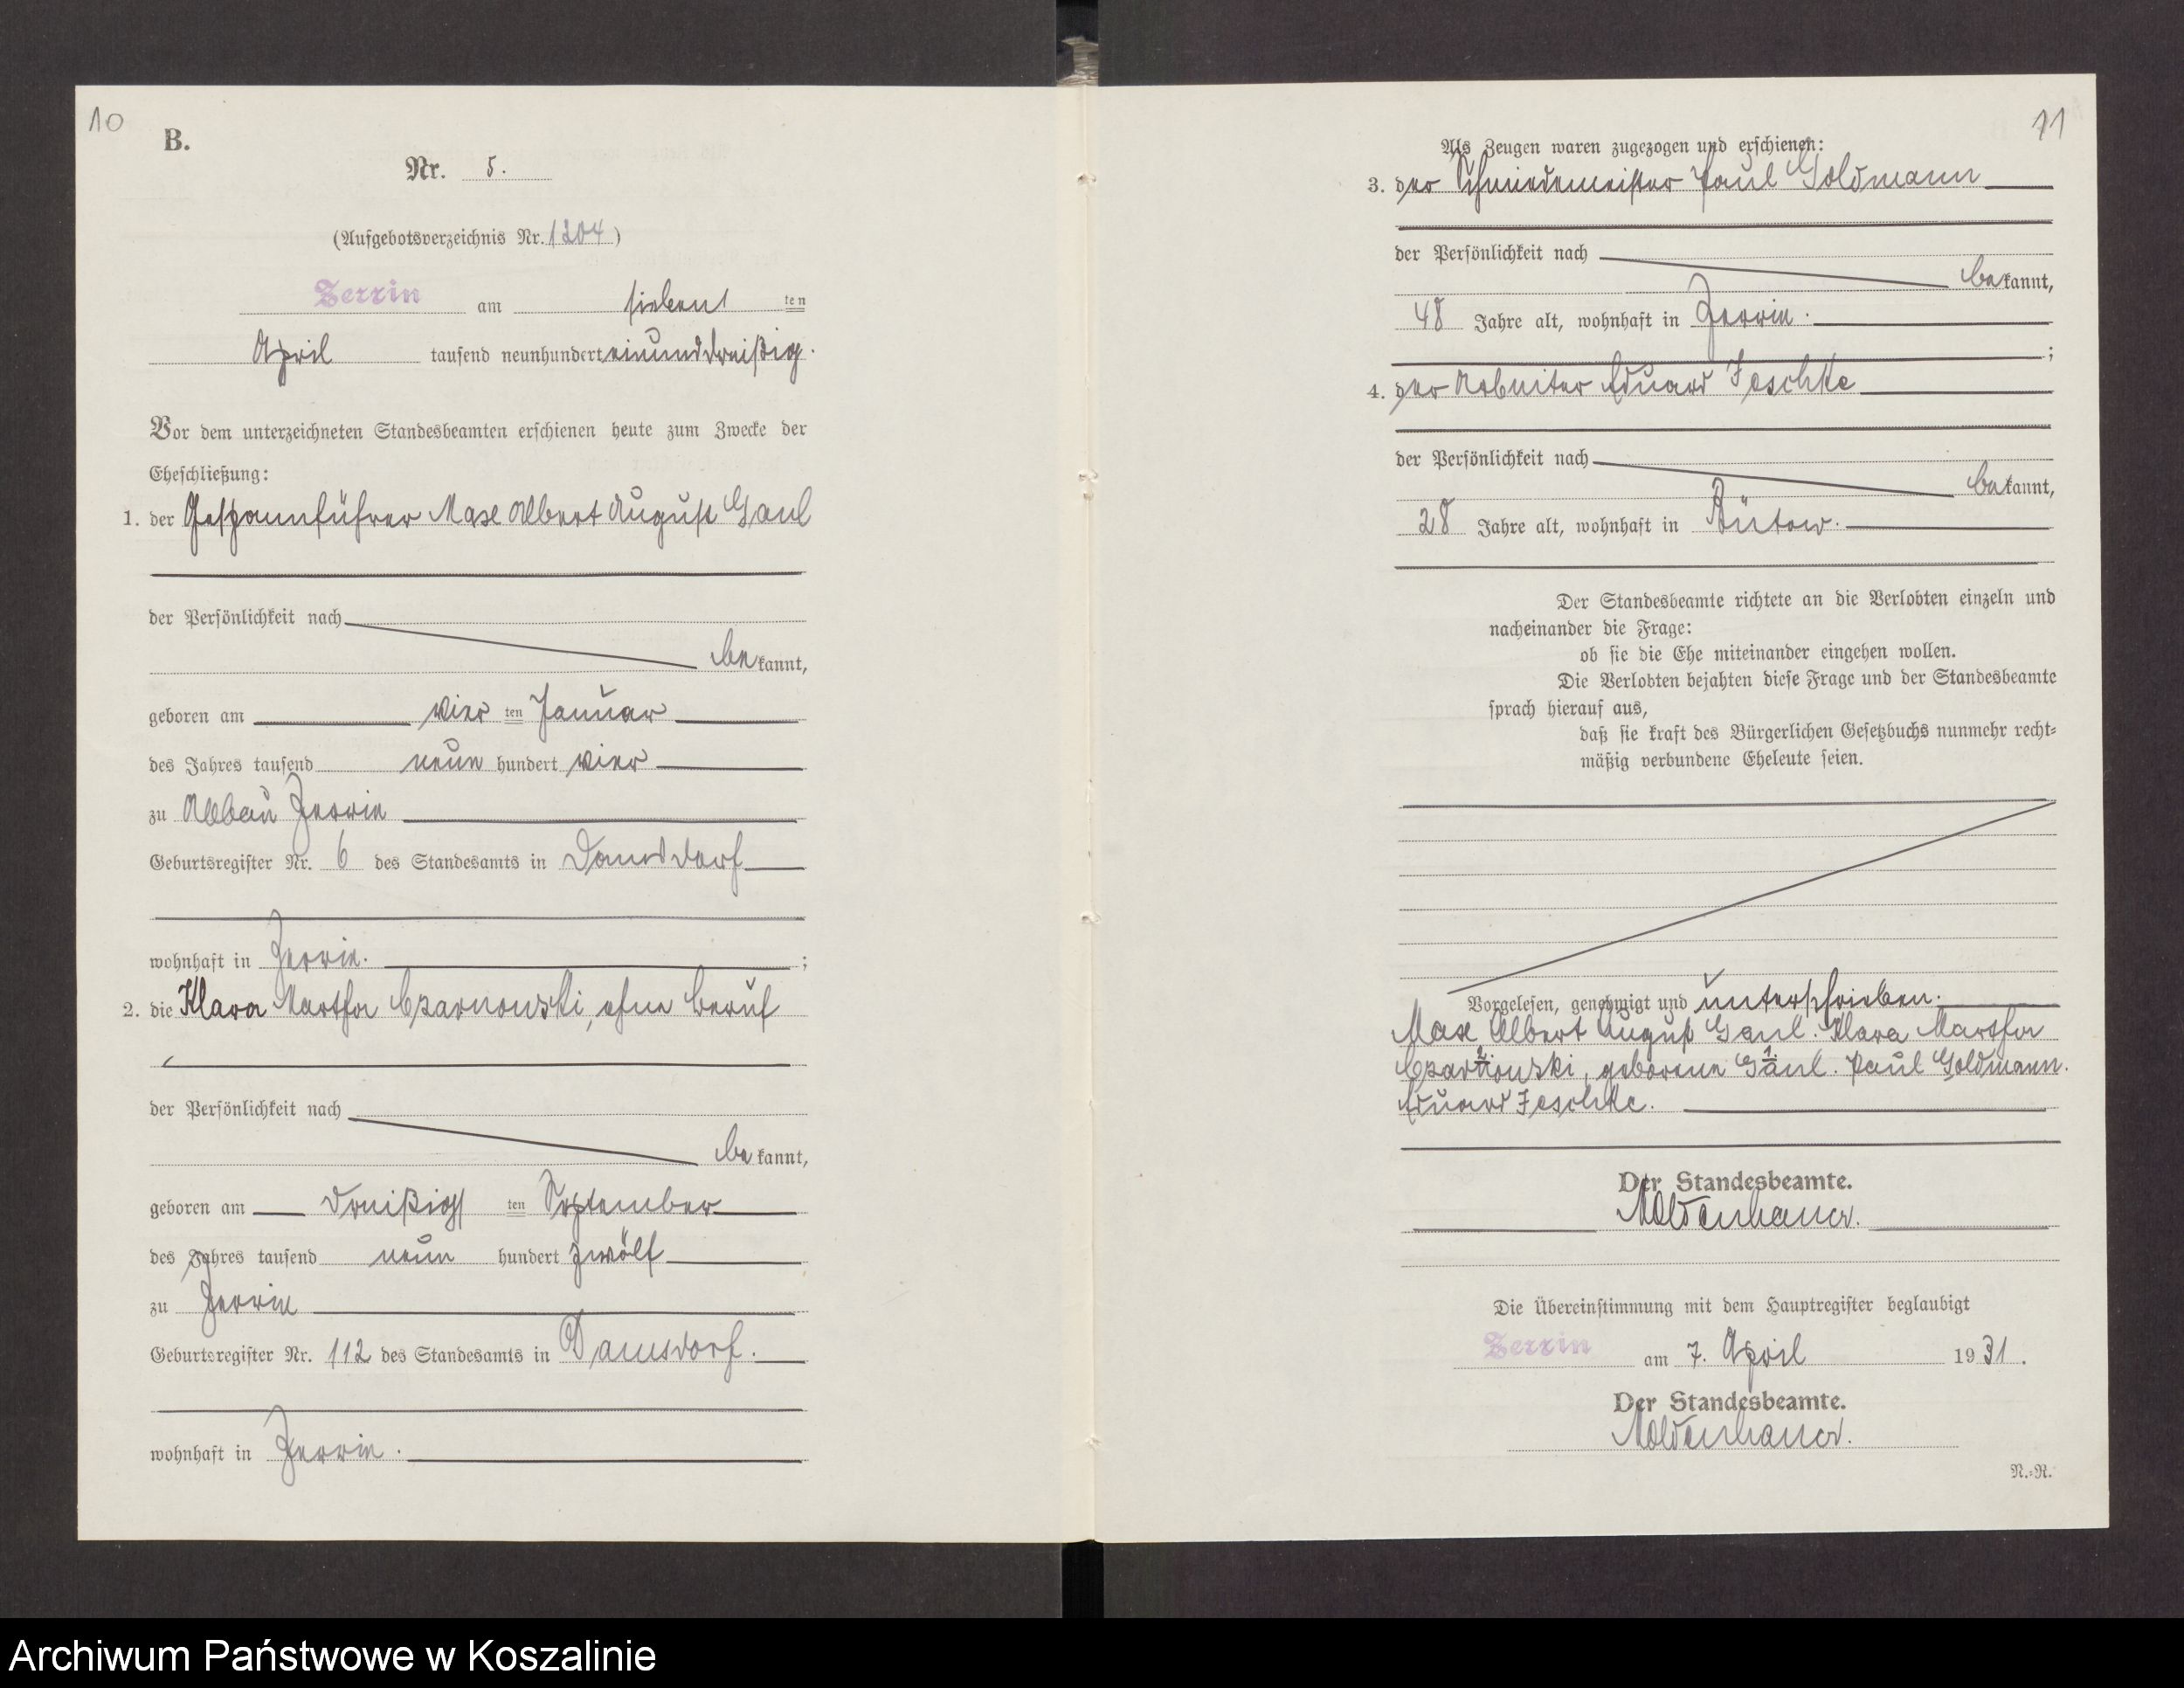 10
B.
Nr. 5.
(Aufgebotsverzeichnis Nr. 1204)
Zerrin am sieben ten
April tausend neunhundert einunddreißig.
Vor dem unterzeichneten Standesbeamten erschienen heute zum Zwecke der
Eheschließung:
1. der Gespannführer Max Albert August Gaul
der Persönlichkeit nach
be kannt,
geboren am vier ten Januar
des Jahres tausend neun hundert vier
zu Abbau Zerrin
Geburtsregister Nr. 6 des Standesamts in Damsdorf
wohnhaft in Zerrin. ;
2. die Klara Martha Czarnowski, ohne Beruf
der Persönlichkeit nach
be kannt,
geboren am dreißigs ten September
des Jahres tausend neun hundert zwölf
zu Zerrin
Geburtsregister Nr. 112 des Standesamts in Damsdorf.
wohnhaft in Zerrin.
11
Als Zeugen waren zugezogen und erschienen:
3. der Schmiedemeister Paul Goldmann
der Persönlichkeit nach
be kannt,
48 Jahre alt, wohnhaft in Zerrin.
;
4. der Arbeiter Eduard Jeschke
der Persönlichkeit nach
be kannt,
28 Jahre alt, wohnhaft in Bütow.
Der Standesbeamte richtete an die Verlobten einzeln und
nacheinander die Frage:
ob sie die Ehe miteinander eingehen wollen.
Die Verlobten bejahten diese Frage und der Standesbeamte
sprach hierauf aus,
daß sie kraft des Bürgerlichen Gesetzbuchs nunmehr recht-
mäßig verbundene Eheleute seien.
Vorgelesen, genehmigt und unterschrieben.
Max Albert August Gaul. Klara Martha
2. 1.
Czarnowski, geborene Gaul. Paul Goldmann.
Eduard Jeschke.
Der Standesbeamte.
Moldenhauer.
Die Übereinstimmung mit dem Hauptregister beglaubigt
Zerrin am 7. April 1931.
Der Standesbeamte.
Moldenhauer.
N.-R.
Archiwum Państwowe w Koszalinie